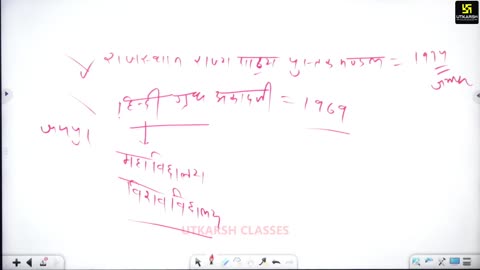 UTKARSH CLASSES
राजस्थान राज्य पाठ्य पुस्तक मण्डल = 1974
हिन्दी ग्रन्थ अकादमी = 1969
जयपुर
महाविद्यालय
विश्वविद्यालय
UTKARSH CLASSES